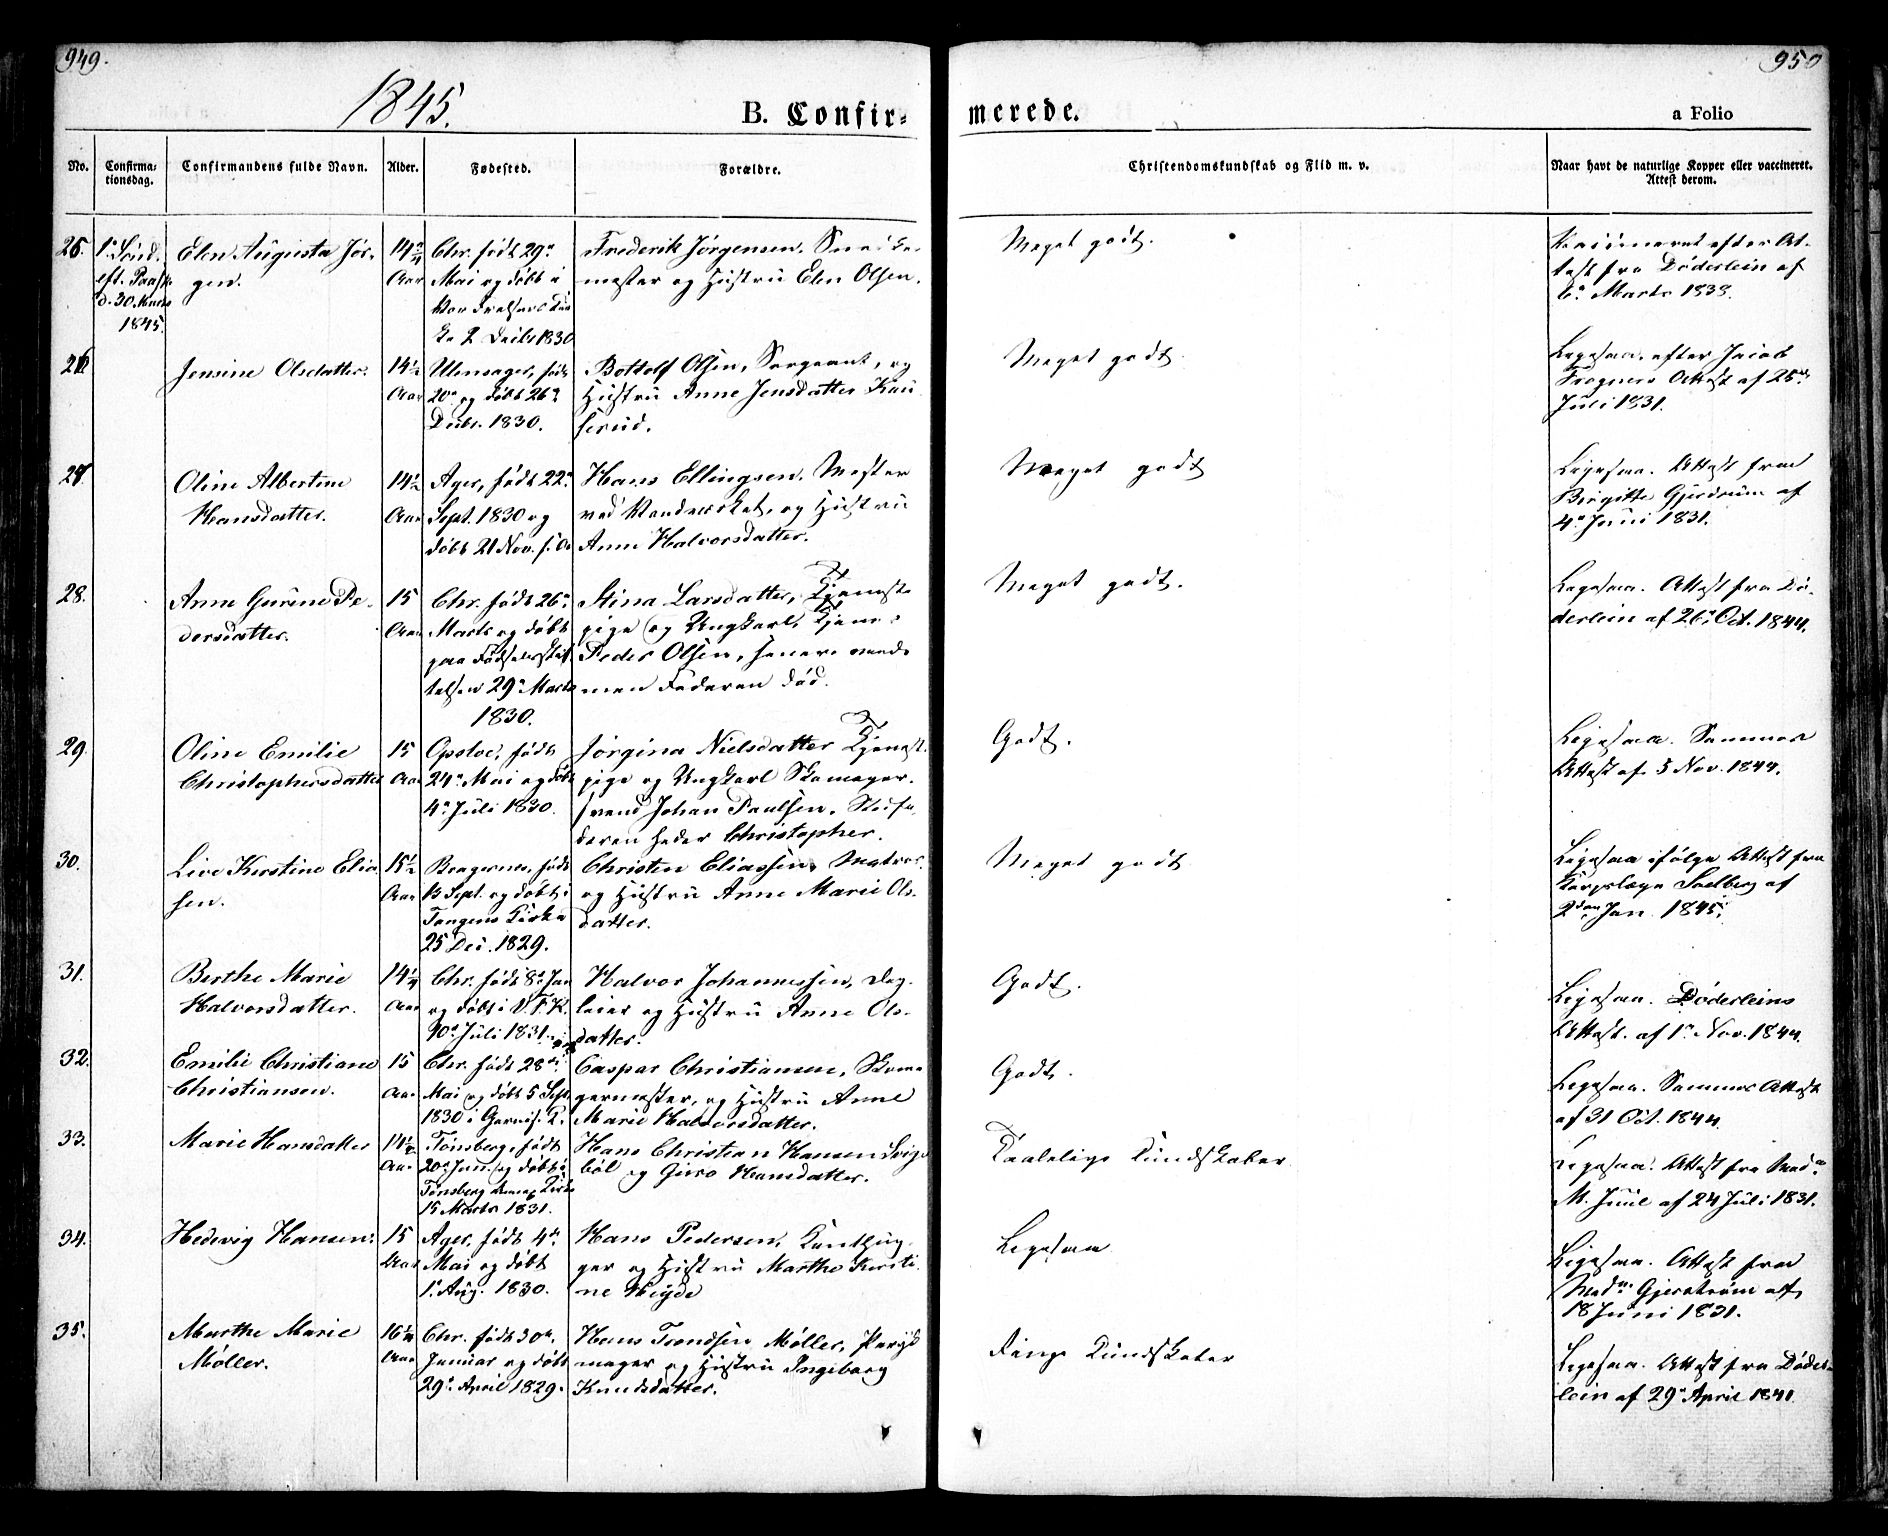 949.
950
1845.
B. Confir-
merede.
a Folio
No.
Confirma-
tionsdag.
Confirmandens fulde Navn.
Alder.
Fødested.
Forældre.
Christendomskundskab og Flid m. v.
Naar havt de naturlige Kopper eller vaccineret.
Attest derom.
25.
1ͤ Sønd.
eft. Paask
d. 30 Marts
1845.
Elen Augusta Jør-
gen.
14¾
Aar
Chr. født 29ͤ
Mai og døbt i
Vor Frelsers Kir
ke 2 Decbr 1830
Frederik Jørgensen,
mester og Hustru Elen Olsen.
Meget godt.
Vaccineret efter At-
test fra Döderlein af
6ͤ Marts 1838.
26.
Jensine Olsdatter.
14½
Aar
Ullensager, født
20ͤ og døbt 26ͤ
Decbr. 1830.
Bottolf Olsen, Sergeant, og
Hustru Anne Jensdatter Kau
serud.
Meget godt
Ligesaa. efter Jacob
Frogners Attest af 25ͤ
Juli 1831.
27.
Oline Albertine
Hansdatter.
14½
Aar
Ager, født 22ͤ
Sept. 1830 og
døbt 21 Nov. s. A.
Hans Ellingsen, Mester
ved Vandverket, og Hustru
Anne Halvorsdatter.
Meget godt
Ligesaa. Attest fra
Birgitte Gjerdrum af
4ͤ Juni 1831.
28.
Anne Gurine Pe-
dersdatter.
15
Aar
Chr. født 26ͤ
Marts og døbt
paa Fødselsstif
telsen 29ͤ Marts
1830.
Stina Larsdatter, Tjeneste
pige og Ungkarl, Tjener
Peder Olsen,
men Faderen død.
Meget godt.
Ligesaa. Attest fra Dö-
derlein af 26ͤ Oct. 1844.
29.
Oline Emilie
Christophersdatter
15
Aar
Opsloe, født
24ͤ Mai og døbt
4ͤ Juli 1830.
Jørgina Nielsdatter Tjenest
pige og Ungkarl Skomager-
svend Johan Paulsen. Stiffa
deren heder Christopher.
Godt.
Ligesaa. Sammes
Attest af 5 Nov. 1844.
30.
Live Kirstine Elia
sen.
15½
Aar
Bragernes, født
13 Sept. og døbt i
Tangens Kirke
25 Dec. 1829.
Christen Eliassen, Matros
og Hustru Anne Marie Ols-
datter.
Meget godt
Ligesaa ifølge Attest fra
Korpslæge Soelberg af
2den Jan. 1845.
31.
Berthe Marie
Halvorsdatter.
14¼
Aar
Chr. født 8ͤ Jan
og døbt i V. F. K.
10ͤ Juli 1831.
Halvor Johannessen, Dag-
leier og Hustru Anne Ols-
datter.
Godt.
Ligesaa. Döderleins
Attest. af 1ͤ Nov. 1844.
32.
Emilie Christiane
Christiansen.
15
Aar
Chr. født 28de
Mai og døbt 5 Sept.
1830 i Garnis. K.
Caspar Christiansen, Skoma
germester, og Hustru Anne
Marie Halvorsdatter.
Godt.
Ligesaa. Sammes Attest
af 31 Oct. 1844.
33.
Marie Hansdatter
14½
Aar
Tønsberg, født
20ͤ Jan. og døbt i
Tønsberg Kirke
15 Marts 1831.
Hans Christian Hansen
böl og Guro Hansdatter.
Taalelige Kundskaber
Ligesaa. Attest fra Madͤ
M. Juul af 24 Juli 1831.
34.
Hedevig Hansen.
15
Aar
Ager, født 4de
Mai og døbt
1ͤ Aug. 1830.
Hans Pedersen,
ger og Hustru Marthe Kirsti-
ne Heyde
Ligesaa
Ligesaa. Attest fra
Madͤ Gjerdrum af
18 Juni 1831.
35.
Marthe Marie
Møller.
16¼
Aar
Chr. født 30te
Januar og døbt
29ͤ April 1829.
Hans Trondsen Møller,
mager og Hustru Ingeborg
Knudsdatter.
Ringe Kundskaber
Ligesaa. Attest fra Döder-
lein af 29ͤ April 1841.